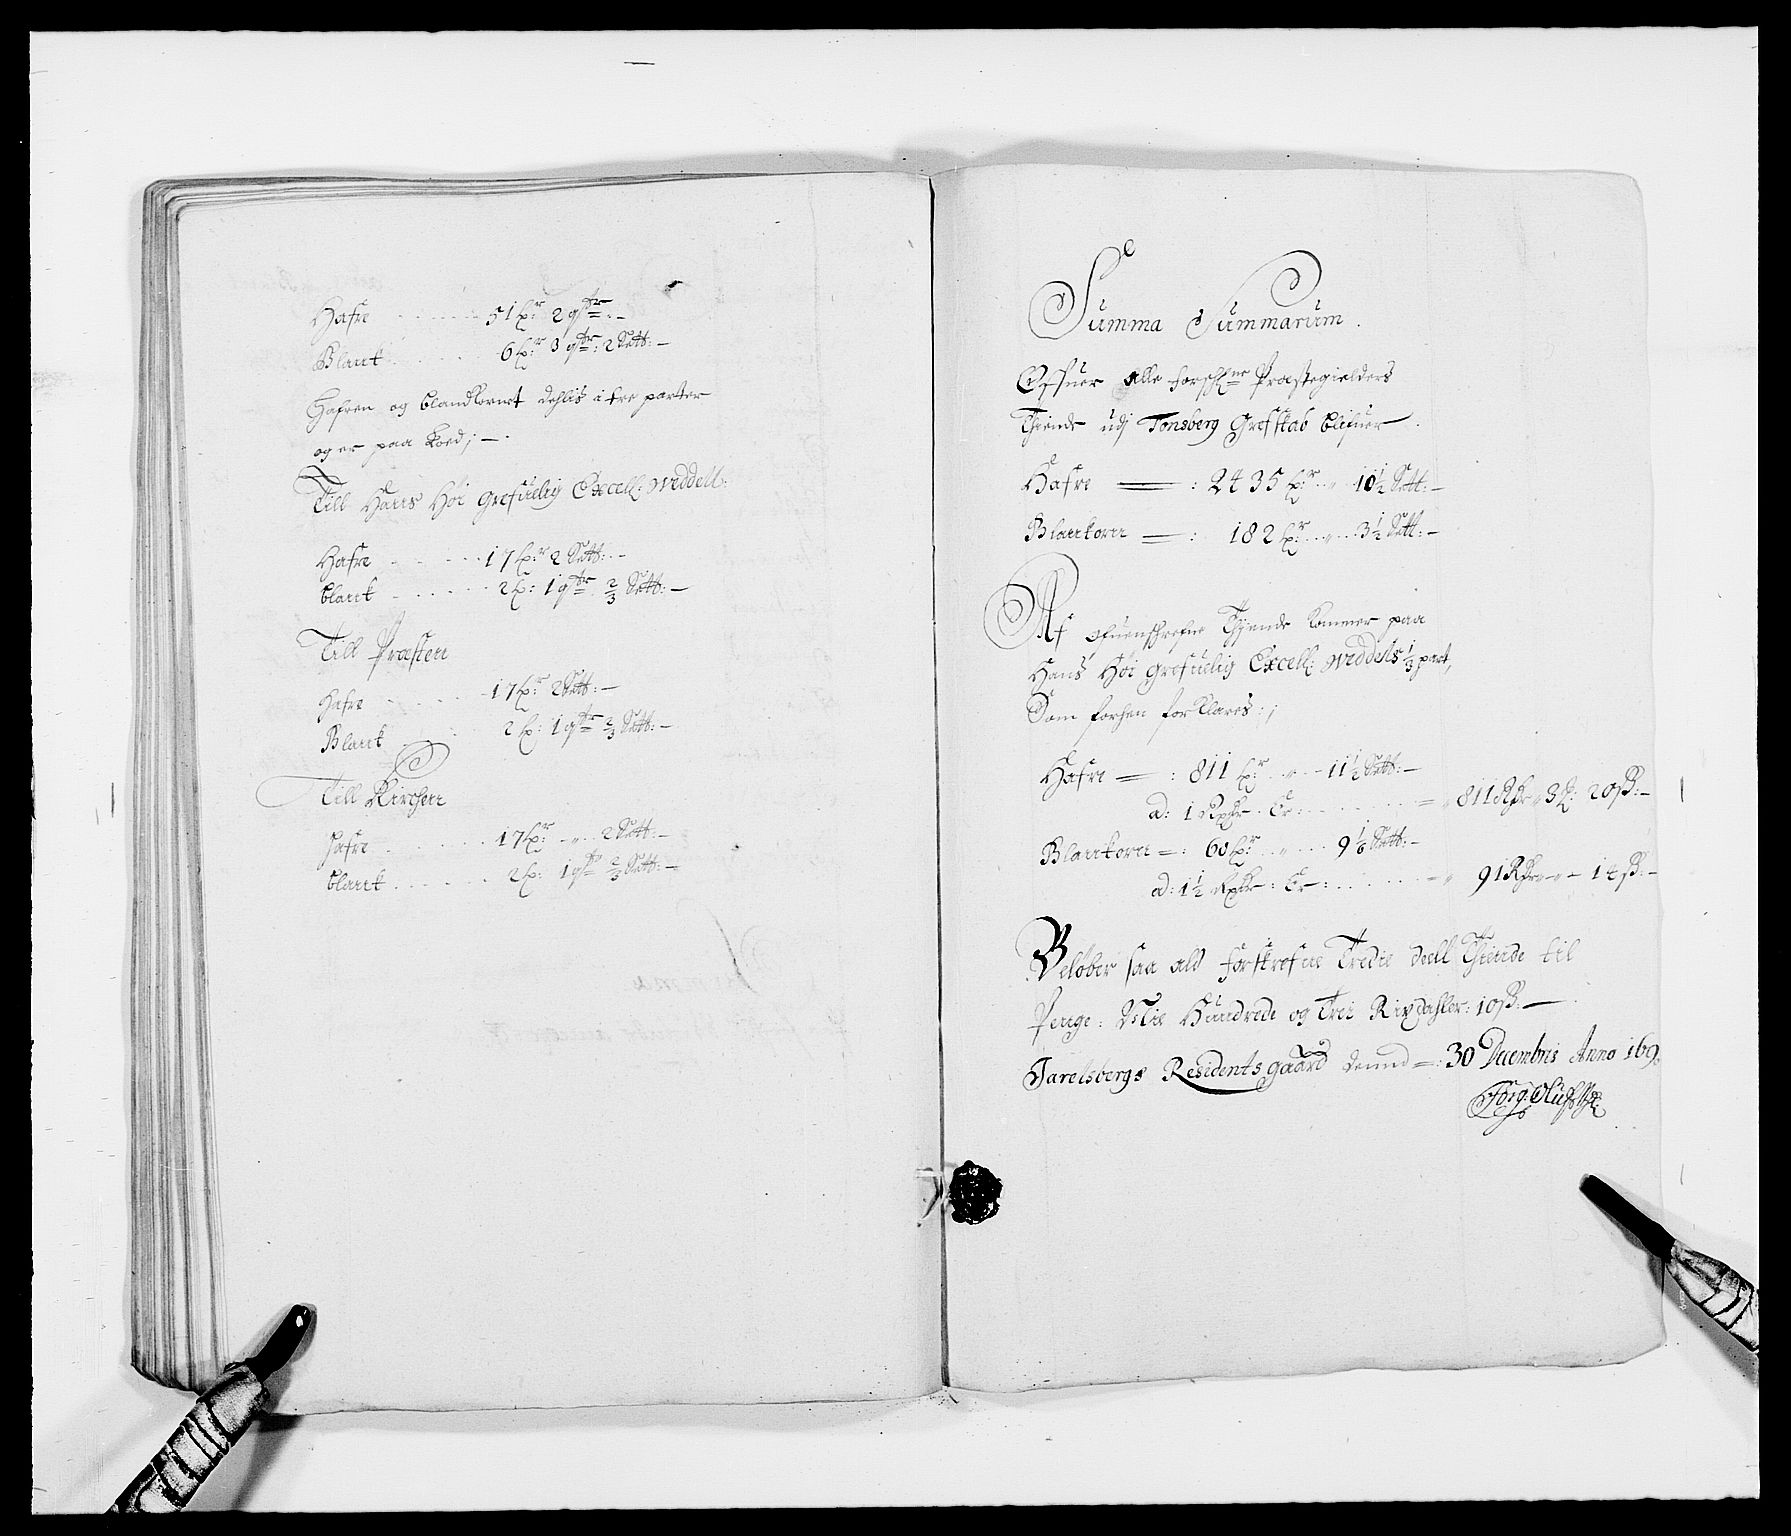 Hafre . . . . . . 51 Tr: 2 qtr: –
Blant . . . . . . 6 Tr: 3 qtr: 2 Sett: –
Hafren og blandkornet dehlis i tre parter
og er paa Roed; – .
Till Hans Høi Grefuelig Excell: Weddell:
Hafre . . . . 17 Tr: 2 Sett: –
blant . . . . . . 2 T: 1 qtr 2/3 Sett: –
Till Præsten
Hafre . . . . . 17 Tr: 2 Sett: –
Blant . . . . . 2 T: 1 qtr 2/3 Sett: –
Till Kirchen
Hafre . . . . . . 17 Tr: „ 2 Sett: –
blant . . . . . . 2 T: 1 qtr 2/3 Sett: –
Summa Summarum .
Offuer alle forschrne Præstegielders
Thiende udj Tonsberg Grefskab blifuer .
Hafre = : 2435 Tr: „ 10 1/2 Sett: –
Blankorn = : 182 Tr: „ 3 1/2 Sett: –
Af ofuenschrefne Thiende kommer paa
Hans Høi Grefuelig Excell: Weddels 1/3 part,
Som forhen forklares : ;
Hafre = : 811 Tr: „ 11 1/2 Sett: –
ad: 1 Rixdr. Er: . . . . . = „ 811 Rdr „ 3 : 20 ß: –
Blankorn = : 60 Tr: „ 9 1/6 Sett: –
ad: 1 1/2 Rixdr: Er: . . . . . = „ 91 Rdr „ – 14 ß: –
Beløber saa ald forskrefne Tredie deell Thiende til
Penge: Nie Hundrede og Trei Rixdahler: 10 ß: –
Jarelsbergs Residentsgaard dennd = : 30 Decembris Anno 169